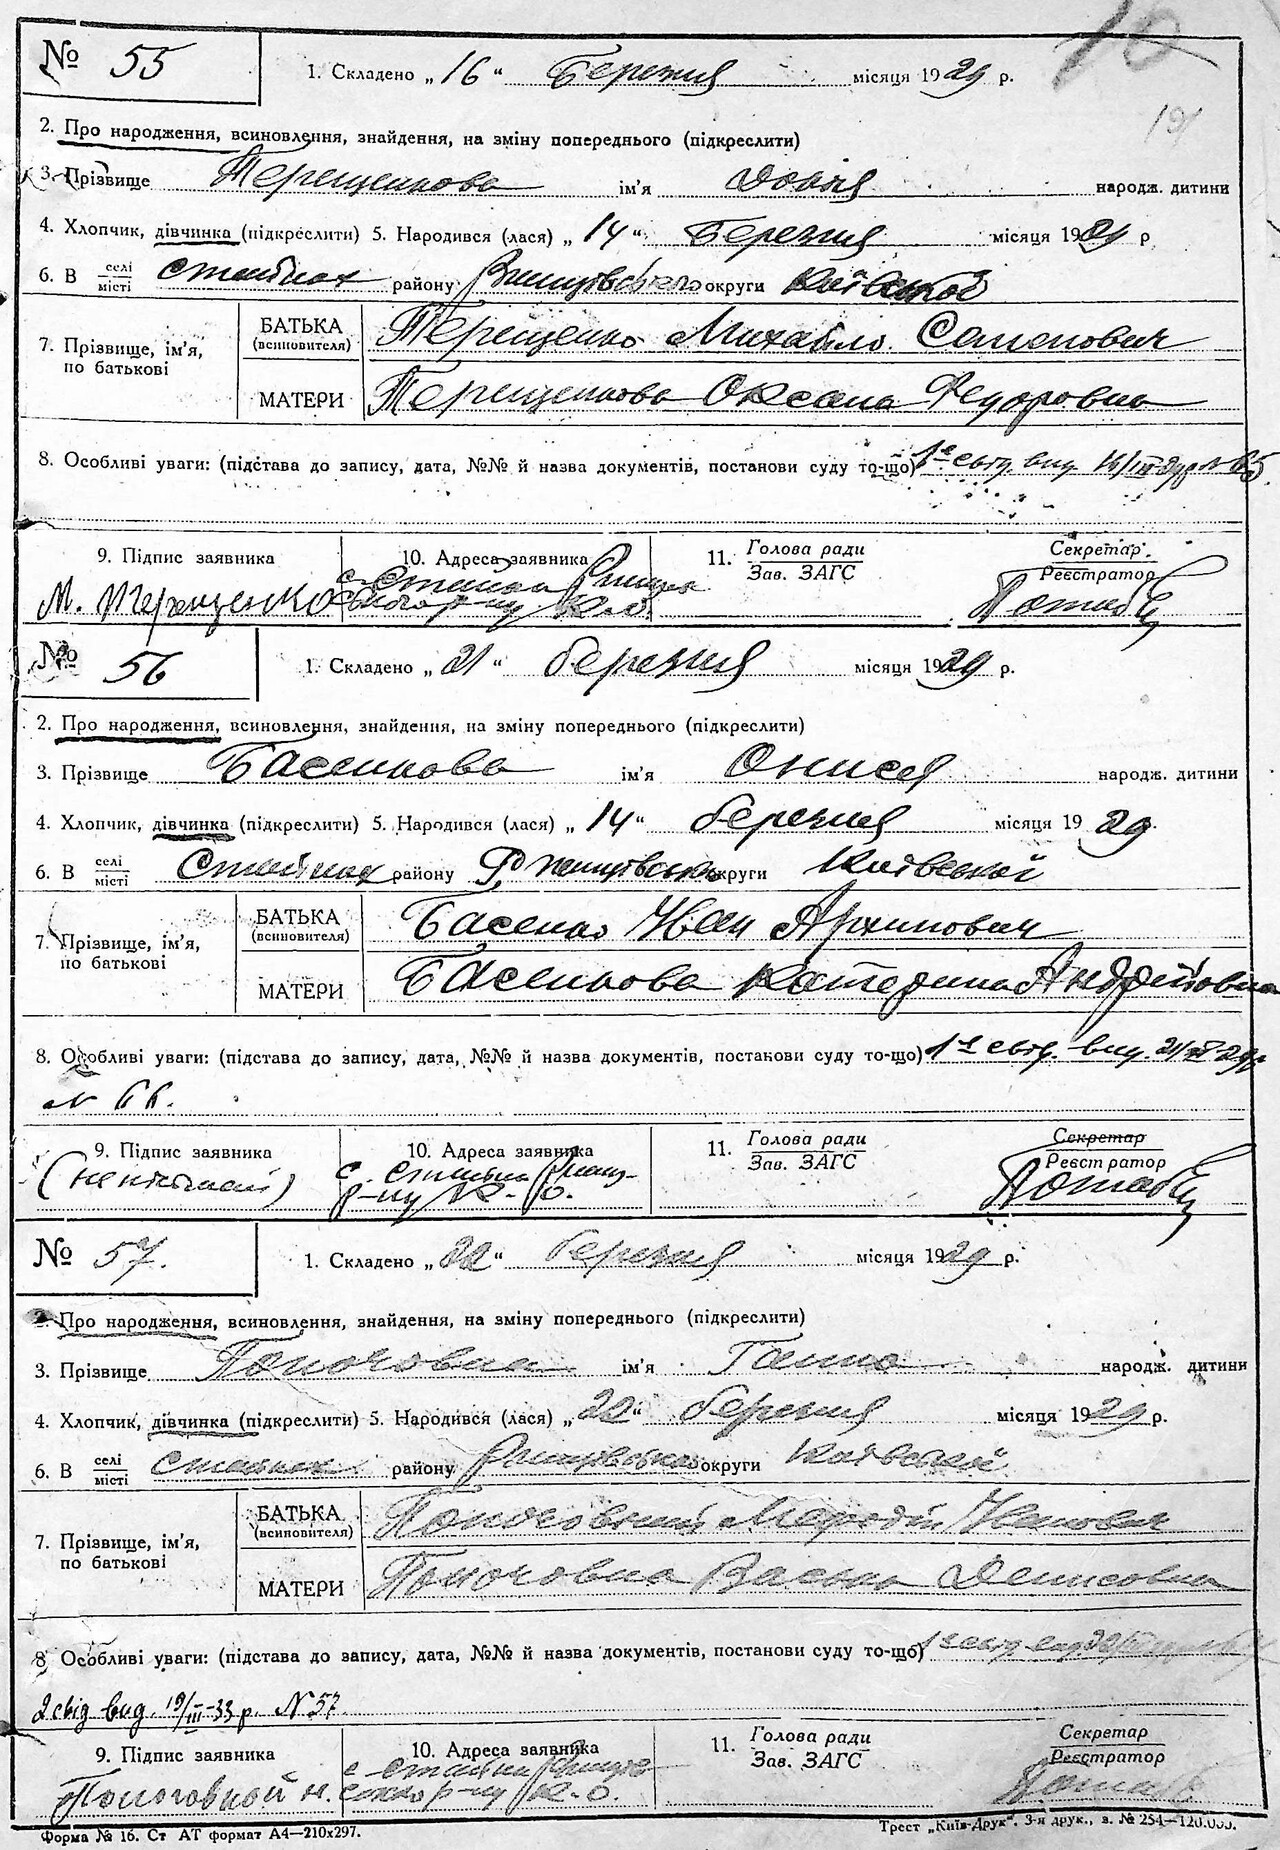 10
191
№ 55
1. Складено „16“ Березня місяця 1929 р.
2. Про народження, всиновлення, знайдення, на зміну попереднього (підкреслити)
3. Прізвище Терещенкова ім'я народж. дитини
4. Хлопчик, дівчинка (підкреслити) 5. Народився (лася) „14“ Березня місяця 1929 р
6. В селі місті Стайках району Ржищівського округи Київської
7. Прізвище, ім'я, по батькові
БАТЬКА (всиновителя) Терещенко Михайло Семенович
МАТЕРИ Терещенкова Оксана Федоровна
8. Особливі уваги: (підстава до запису, дата, №№ й назва документів, постанови суду то-що)
9. Підпис заявника 10. Адреса заявника 11. Голова ради Зав. ЗАГС Секретар Реєстратор
М. Терещенко с. Стайки
№ 56
1. Складено „21“ березня місяця 1929 р.
2. Про народження, всиновлення, знайдення, на зміну попереднього (підкреслити)
3. Прізвище Басенкова ім'я Онися народж. дитини
4. Хлопчик, дівчинка (підкреслити) 5. Народився (лася) „14“ березня місяця 1929
6. В селі місті Стайках району Ржищівськ округи Київської
7. Прізвище, ім'я, по батькові
БАТЬКА (всиновителя) Басенко Иван Архипович
МАТЕРИ Басенкова Катерина Андріївна
8. Особливі уваги: (підстава до запису, дата, №№ й назва документів, постанови суду то-що)
N 66.
9. Підпис заявника 10. Адреса заявника 11. Голова ради Зав. ЗАГС Секретар Реєстратор
с. Стайки
р-ну К-О.
№ 57.
1. Складено „22“ березня місяця 1929 р.
2. Про народження, всиновлення, знайдення, на зміну попереднього (підкреслити)
3. Прізвище ім'я Ганна народж. дитини
4. Хлопчик, дівчинка (підкреслити) 5. Народився (лася) „22“ березня місяця 1929 р.
6. В селі місті Стайках району Ржищівського округи Київської
7. Прізвище, ім'я, по батькові
БАТЬКА (всиновителя) Мефодій Иванович
МАТЕРИ Денисовна
8. Особливі уваги: (підстава до запису, дата, №№ й назва документів, постанови суду то-що)
2 свід вид. 19/III-33 р. N 57
9. Підпис заявника 10. Адреса заявника 11. Голова ради Зав. ЗАГС Секретар Реєстратор
с. Стайки
р-ну К-О.
Форма № 16. Ст АТ формат А4—210x297. Трест „Київ-Друк“. 3-я друк., з. № 254—120.000.